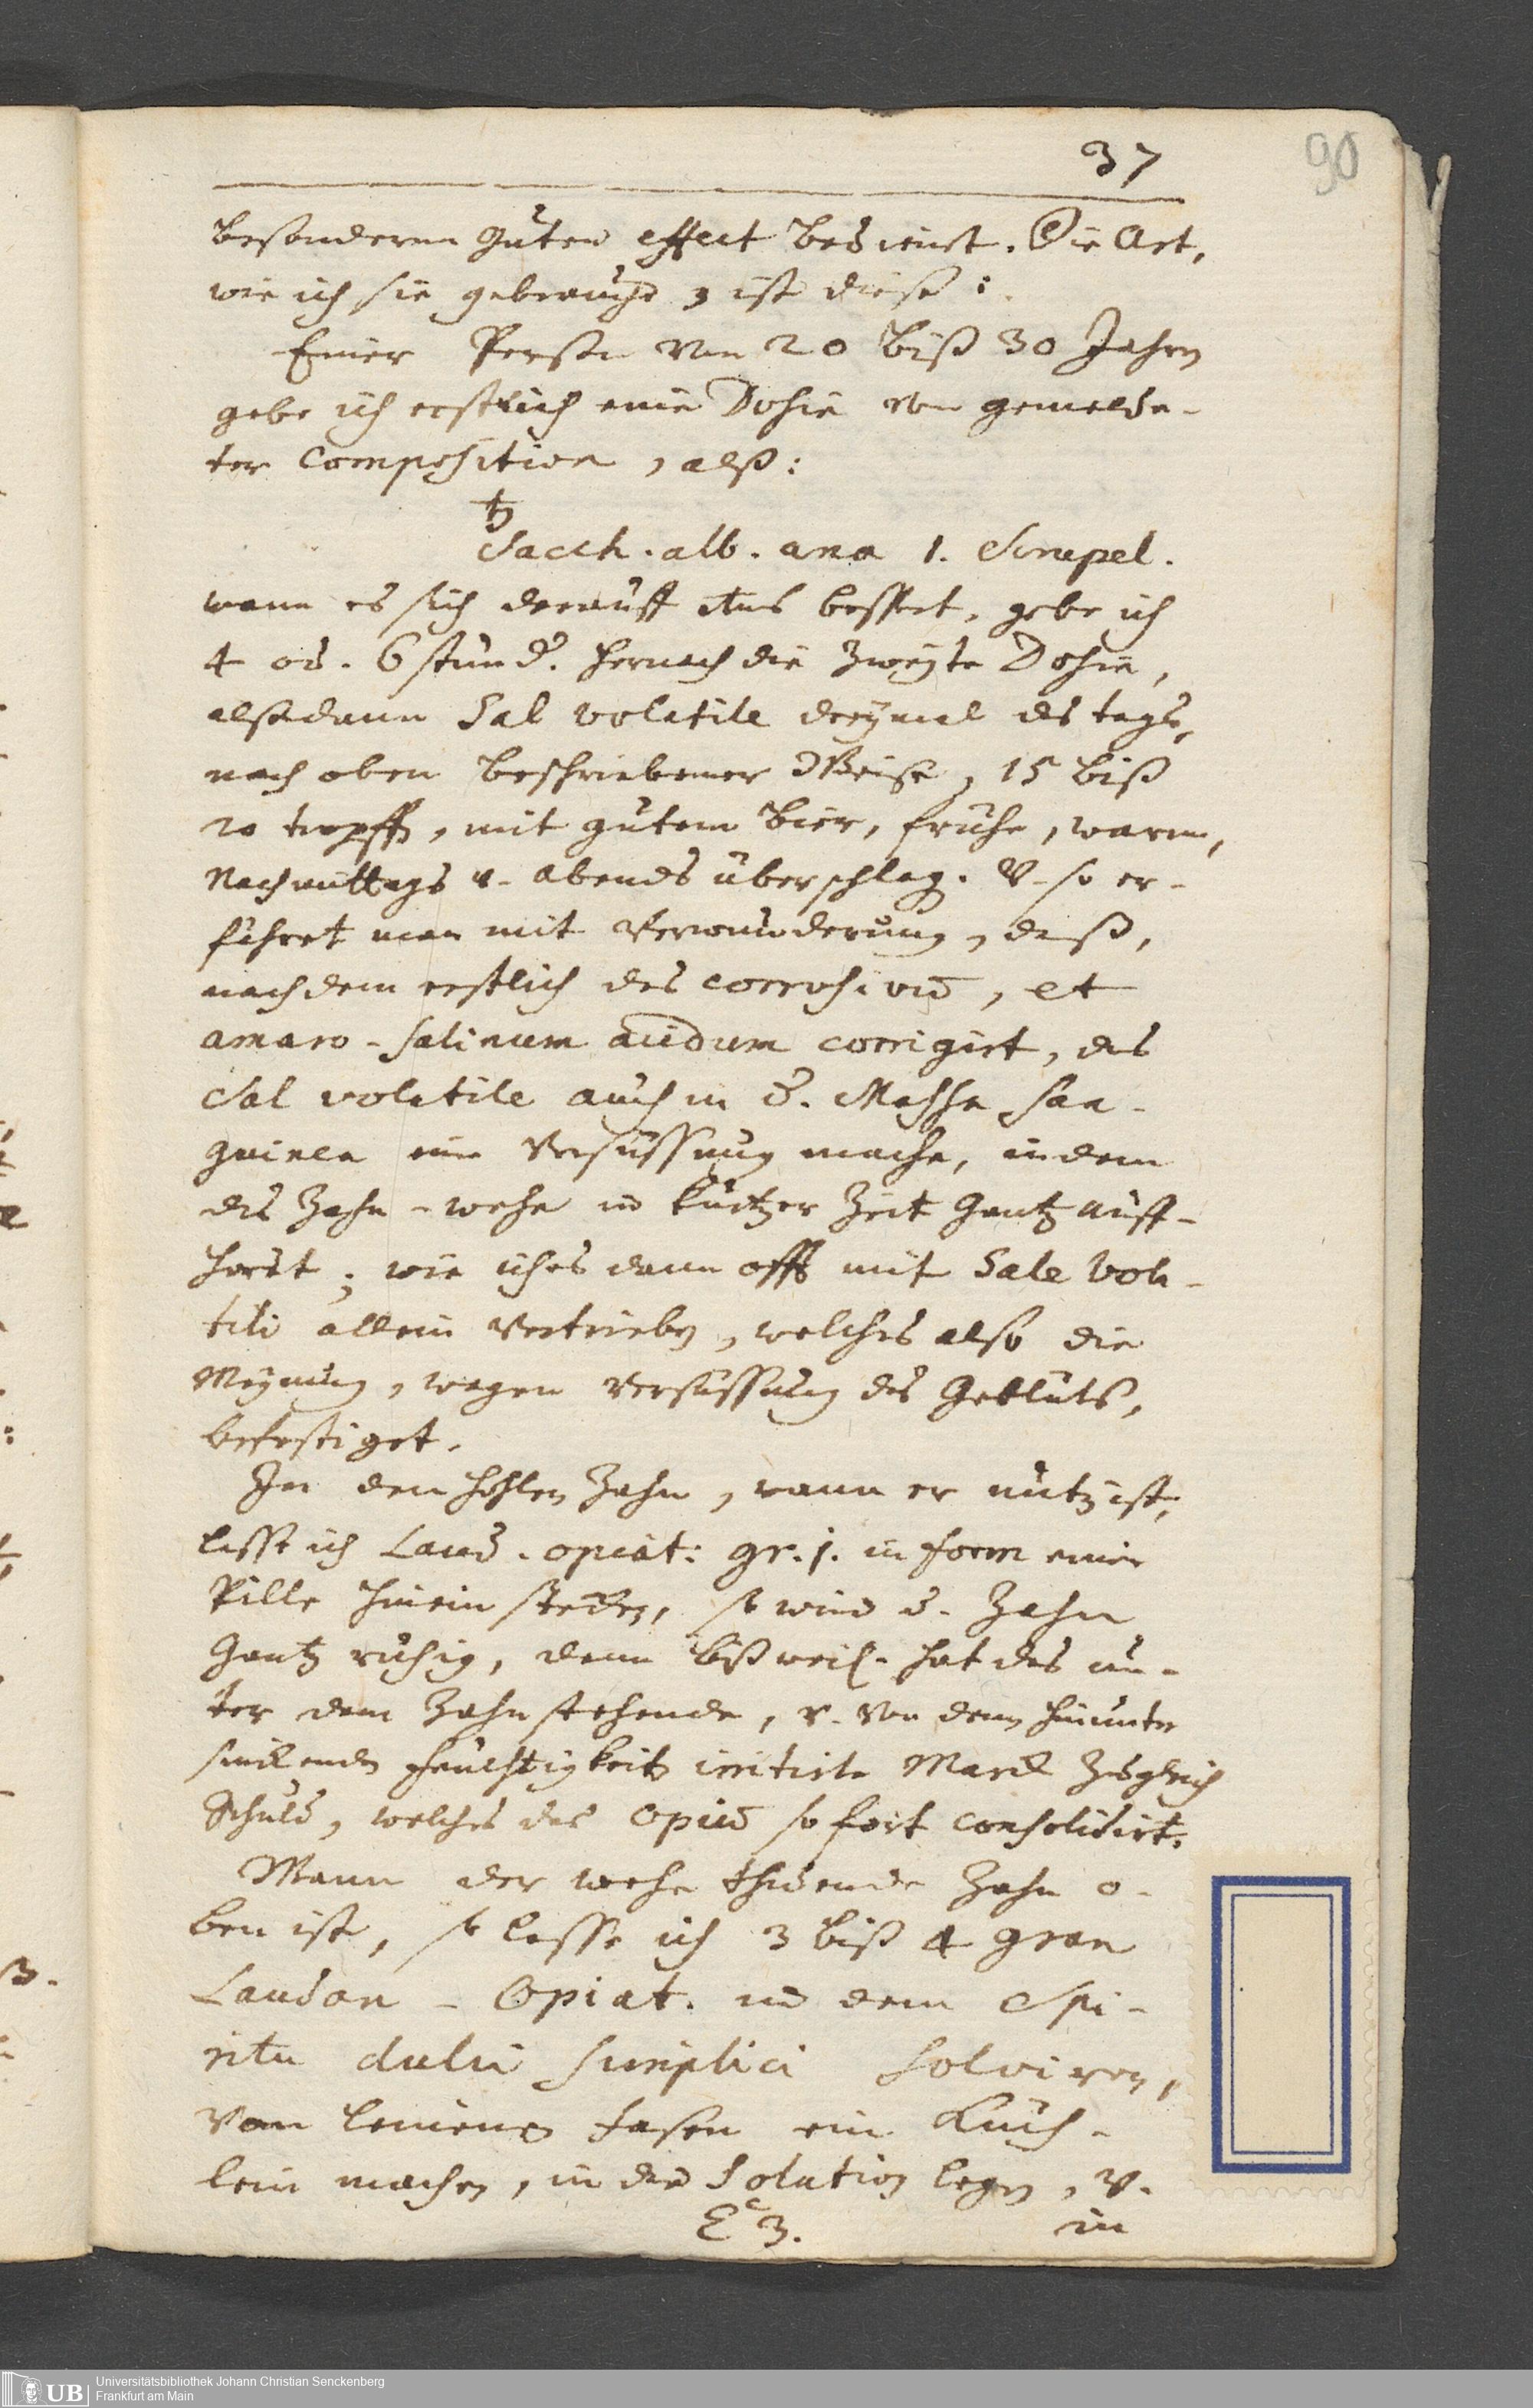 90
37
besonderm guten effect bedienet. Die Art,
wie ich sie gebrauche, ist diese:
Einer Person von 20 biß 30 Jahren
gebe ich erstlich eine Dosin von gemelde-
ter Composition, alß:
♄
Sacch. alb. ana 1. Scrupel.
wann es sich darauff etwas bessert, gebe ich
4 od. 6 stund. hernach die zweyte Dosin,
alßdann Sal volatile dreymal des tags,
nach oben beschriebener Weise, 15 biß
20 tropffen, mit gutem Bier, frühe, warm,
Nachmittags u. abends überschlag. u. so er-
fähret man mit Verwunderung, daß,
nachdem erstlich das corrosivū, et
amaro-salinum acidum corrigirt, das
Sal volatile auch in d. Massa san-
guinea eine Versüssung mache, indem
das Zahn-wehe in kurtzer Zeit gantz auff-
höret; wie ich es dann offt mit Sale vola-
tili allein vertrieben, welches also die
Meynung, wegen Versüssung des Geblüts,
befestiget.
In den hohlen Zahn, wann er unten ist,
lasse ich Laud. opiat: gr. j. in form einer
Pille hinein stecken, so wird d. Zahn
gantz ruhig, denn bißweil. hat das un-
ter dem Zahn stehende, u. von dem hinunter
sinckenden Feuchtigkeit irritirte Marck zugleich
Schuld, welches das Opiū sofort consolidirt.
Wann der wehe thuende Zahn o-
ben ist, so lasse ich 3 biß 4 gran
Laudan- Opiat. in dem Spi-
ritu dulci simplici solviren,
von leinen fasen ein Küch-
lein machen, in die Solution legen, u.
E 3.
in
UB
Universitätsbibliothek Johann Christian Senckenberg
Frankfurt am Main